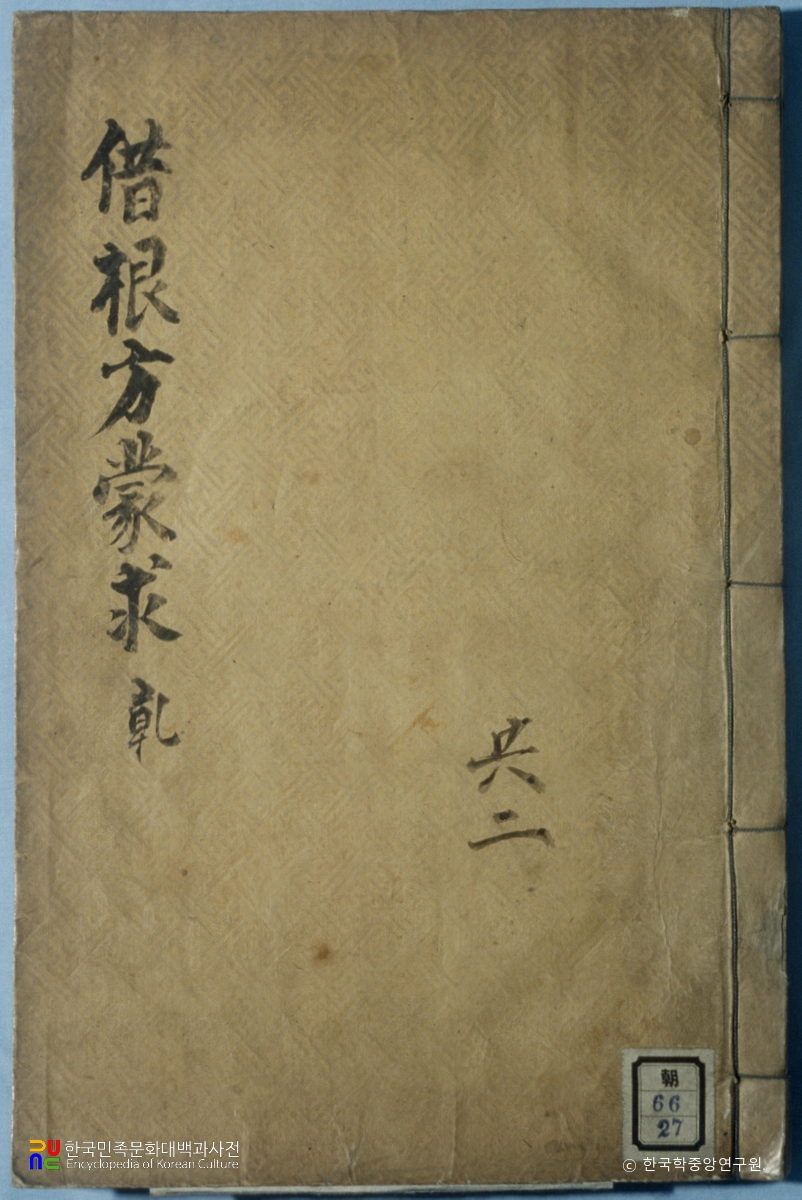 借根方蒙求 乾
共二
朝
66
27
한국민족문화대백과사전
Encyclopedia of Korean Culture
© 한국학중앙연구원